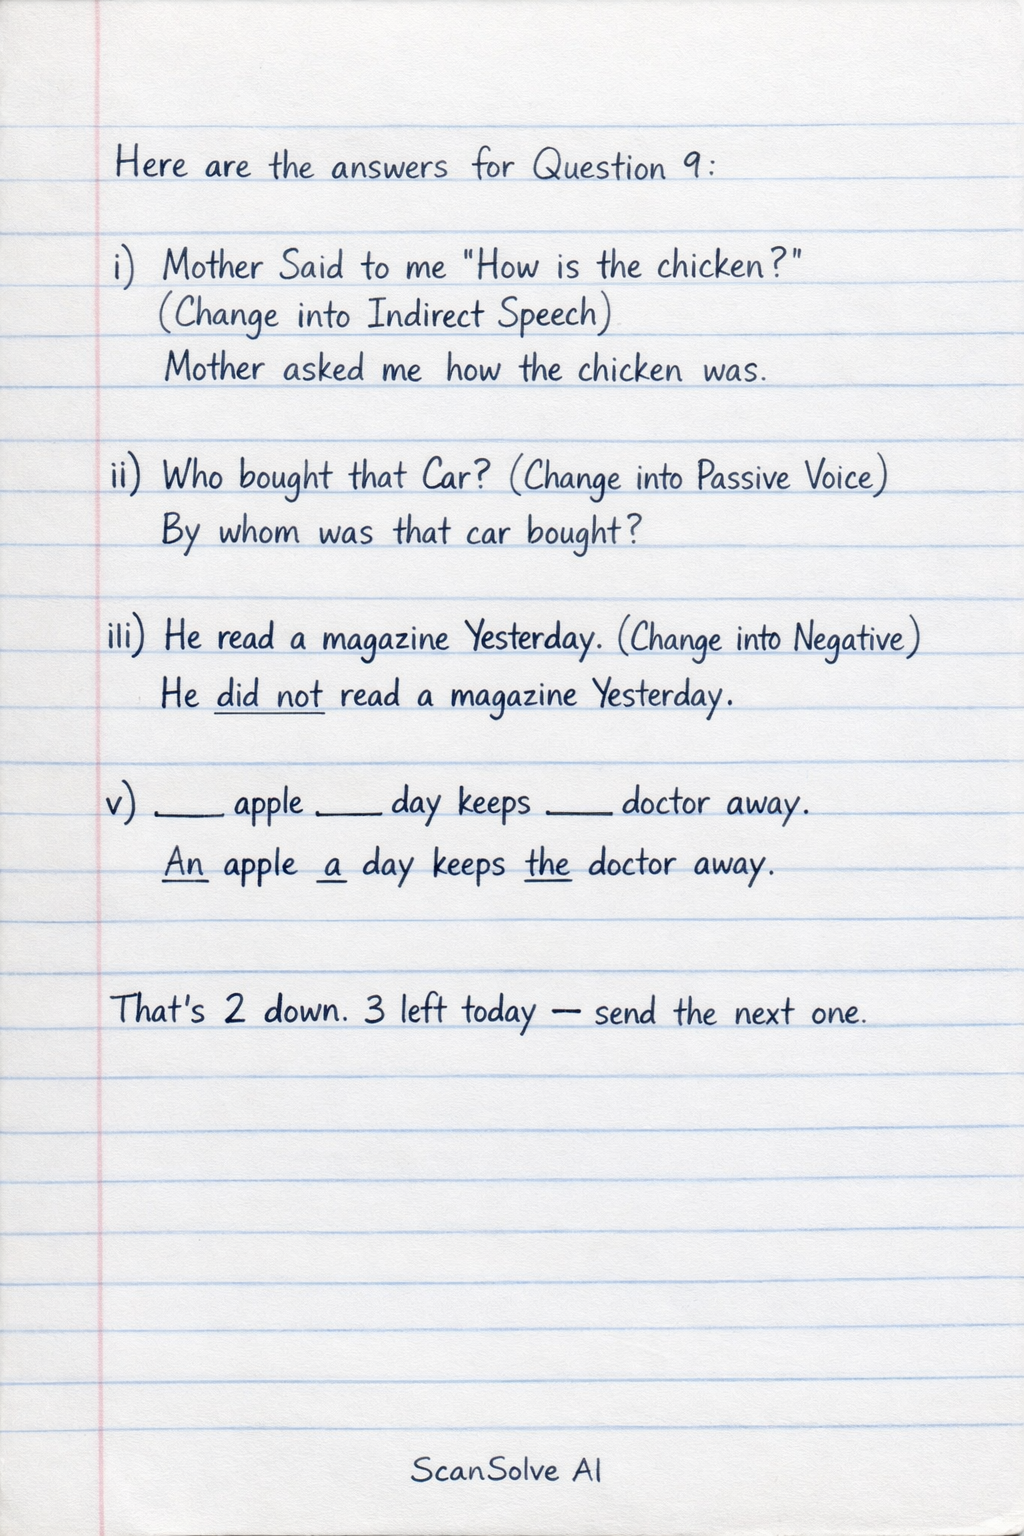 Here are the answers for Question 9:
i) Mother Said to me "How is the chicken?"
(Change into Indirect Speech)
Mother asked me how the chicken was.
ii) Who bought that Car? (Change into Passive Voice)
By whom was that car bought?
iii) He read a magazine Yesterday. (Change into Negative)
He did not read a magazine Yesterday.
v) ___ apple ___ day keeps ___ doctor away.
An apple a day keeps the doctor away.
That's 2 down. 3 left today — send the next one.
ScanSolve AI